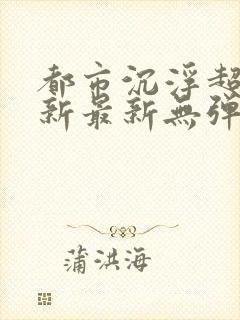 都市沉浮超
新最新無弹
蒲洪海